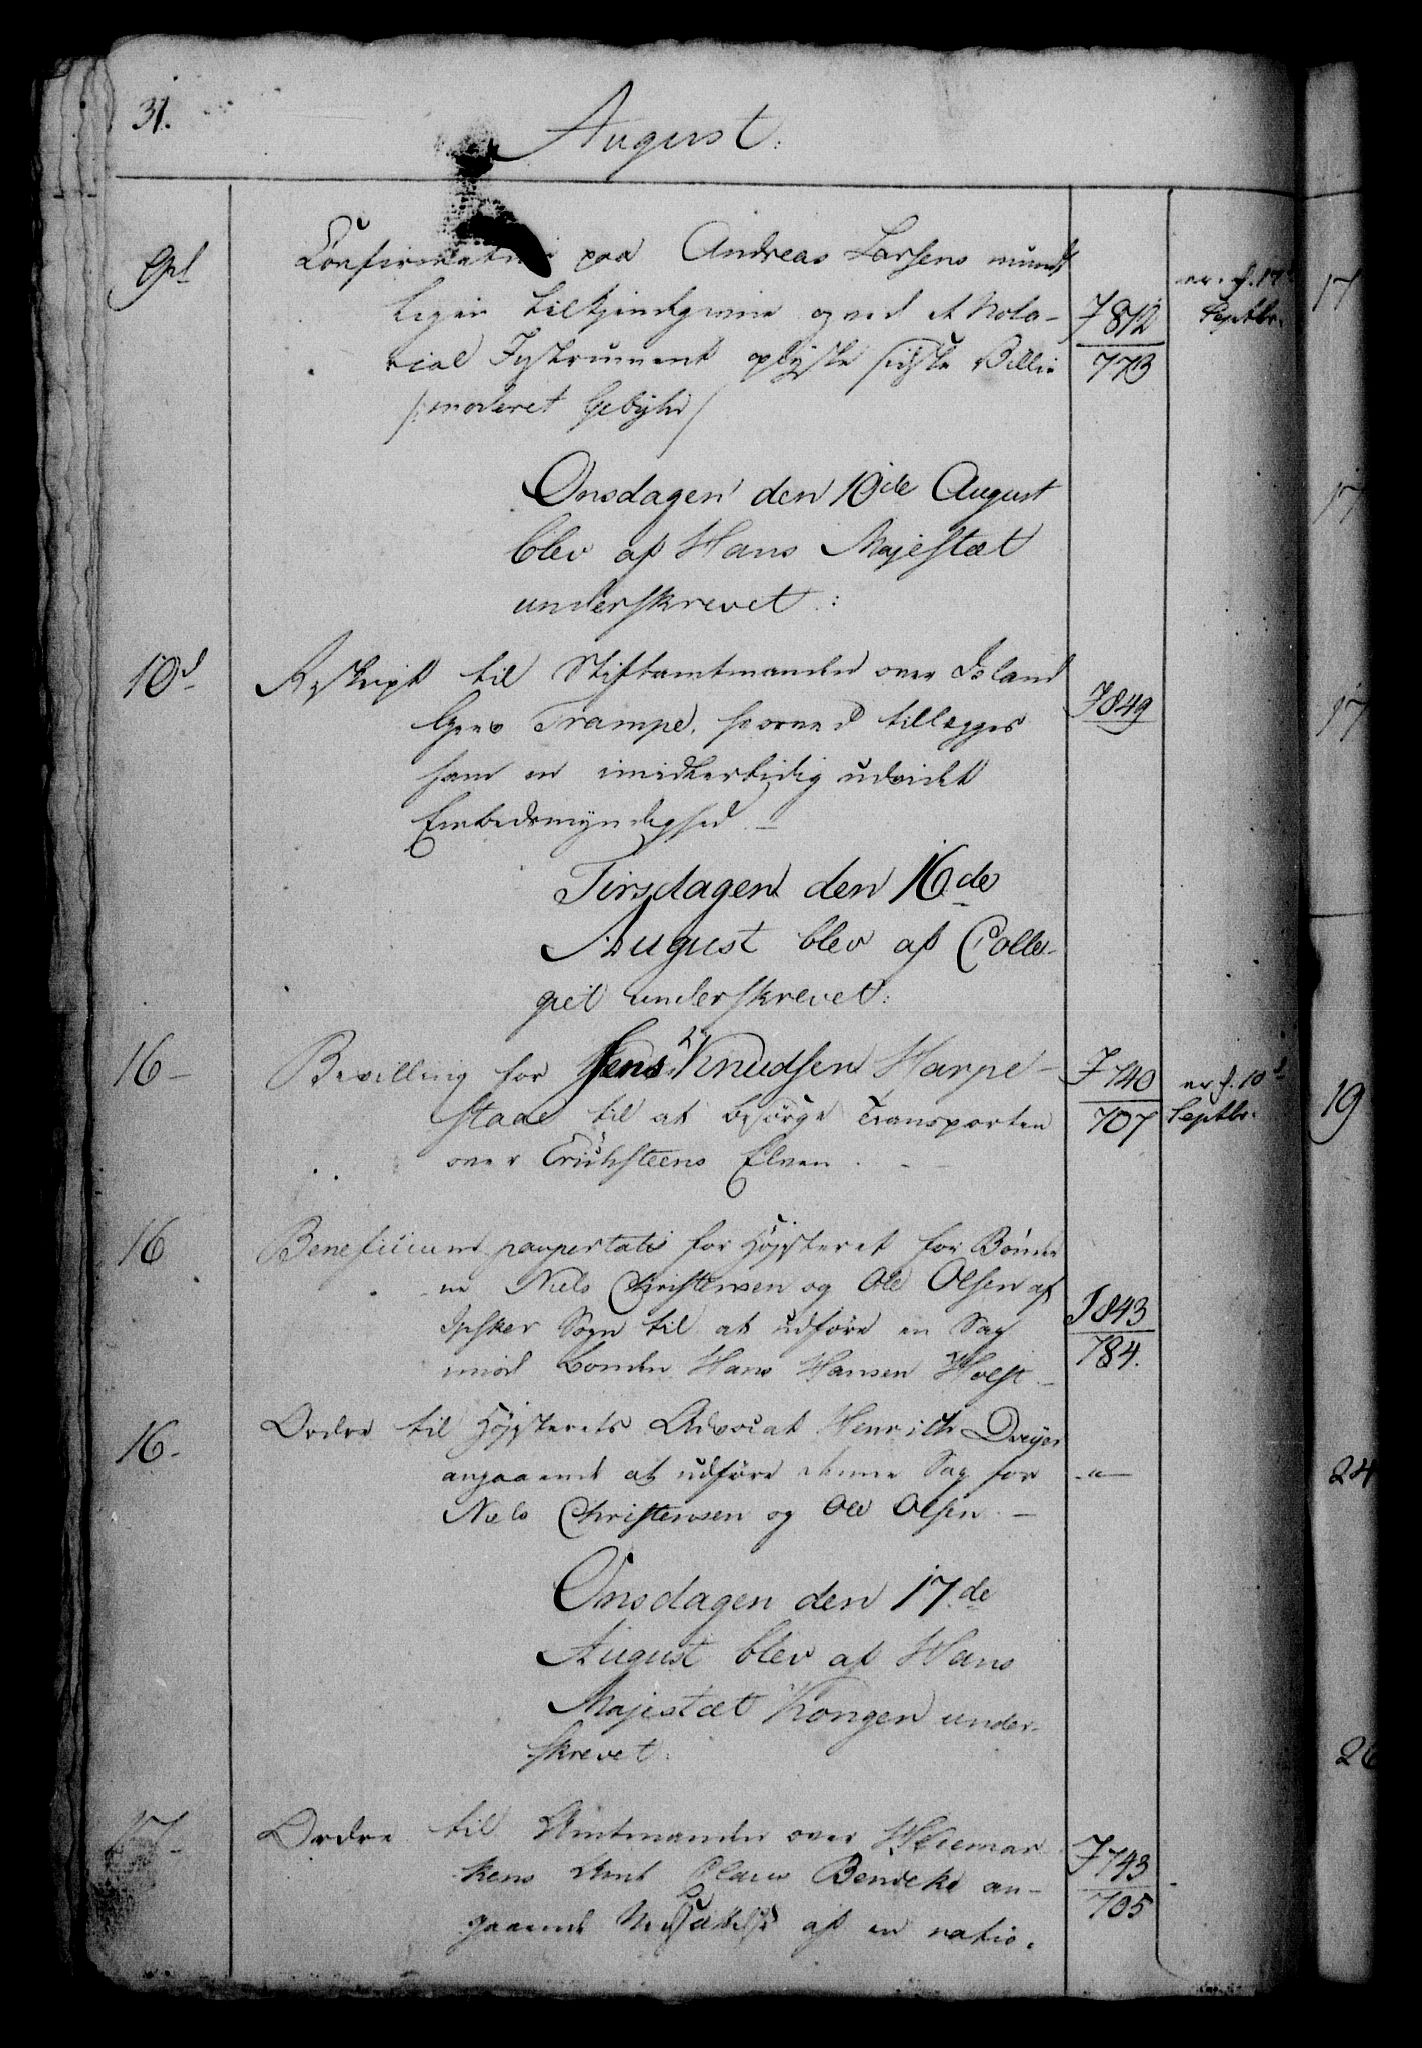 31.
August.
9d
Confirmation paa Andreas Larsens mundt
ligen tilkjendgivne og ved et Nota-
rial Instrument oplyste sidste Villie
/: moderet Gebyhr /
J 812
773
er. f. 17d
Septbr.
Onsdagen den 10de August
blev af Hans Majestæt
underskrevet:
10d
Reskript til Stiftamtmanden over Island
Grev Trampe, hvorved tillægges
ham en imidlertidig udvidet
Embedsmyndighed. —
J 849
Tirsdagen den 16de
August blev af Colle-
giet underskrevet:
16 —
Bevilling for Jens Knudsen Harpe-
stad til at besørge Transporten
over Elven.
J 740
707
er f. 10d
Septbr.
16
Beneficium paupertatis for Höjesteret for Bönder
ne Niels Christensen og Ole Olsen af
Ipsker Sogn til at udføre en Sag
mod Bonden Hans Hansen Holst —
J 843
784.
16 -
Ordre til Höjesterets Advocat Henrich Dreyer
angaaende at udføre denne Sag for
Niels Christensen og Ole Olsen. —
-"-
Onsdagen den 17de
August blev af Hans
Majestæt Kongen under-
skrevet:
17 -
Ordre til Amtmanden over Hedemar
kens Amt Claus Bendeke an-
gaaende Nedsættelse af en natio-
J 743
705
17
17
17
19
24
26